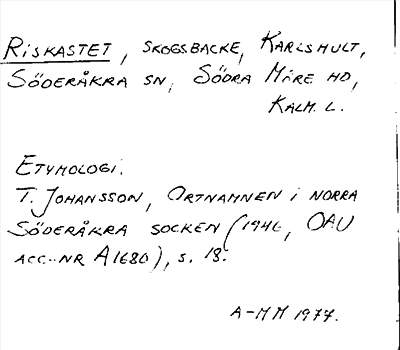 RISKASTET, SKOGSBACKE, KARLSHULT,
SÖDERÅKRA SN, SÖDRA MÖRE HD,
KALM. L.
ETYMOLOGI.
T. JOHANSSON, ORTNAMNEN I NORRA
SÖDERÅKRA SOCKEN (1946, OAU
ACC.-NR A1680), S. 18.
A-MM 1977.